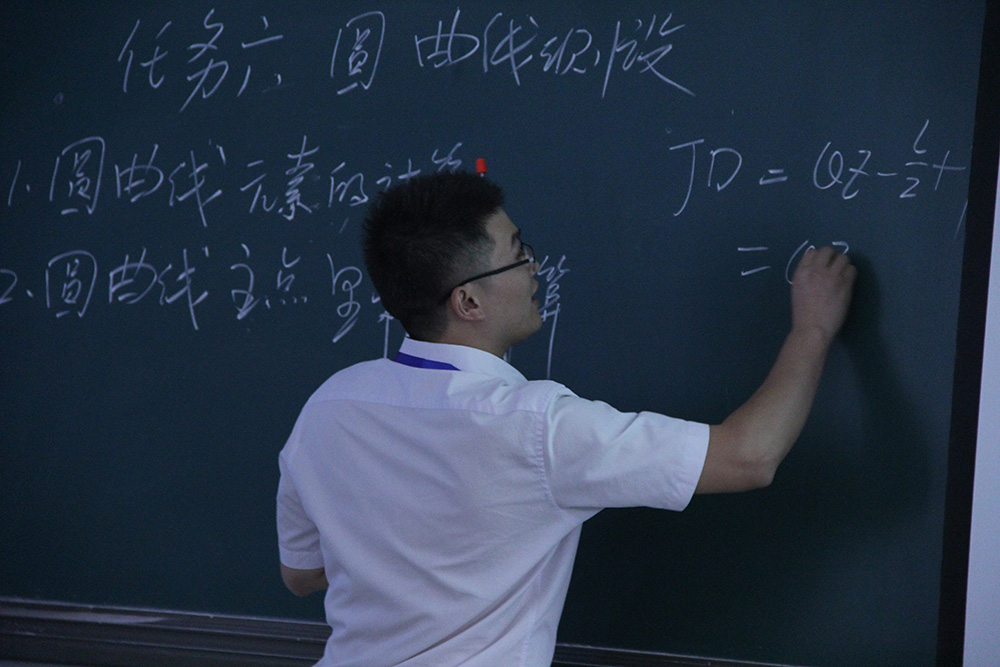 任务六 圆曲线测设
1. 圆曲线元素的计算
2. 圆曲线主点里 算
JD = QZ - L/2 +
= QZ